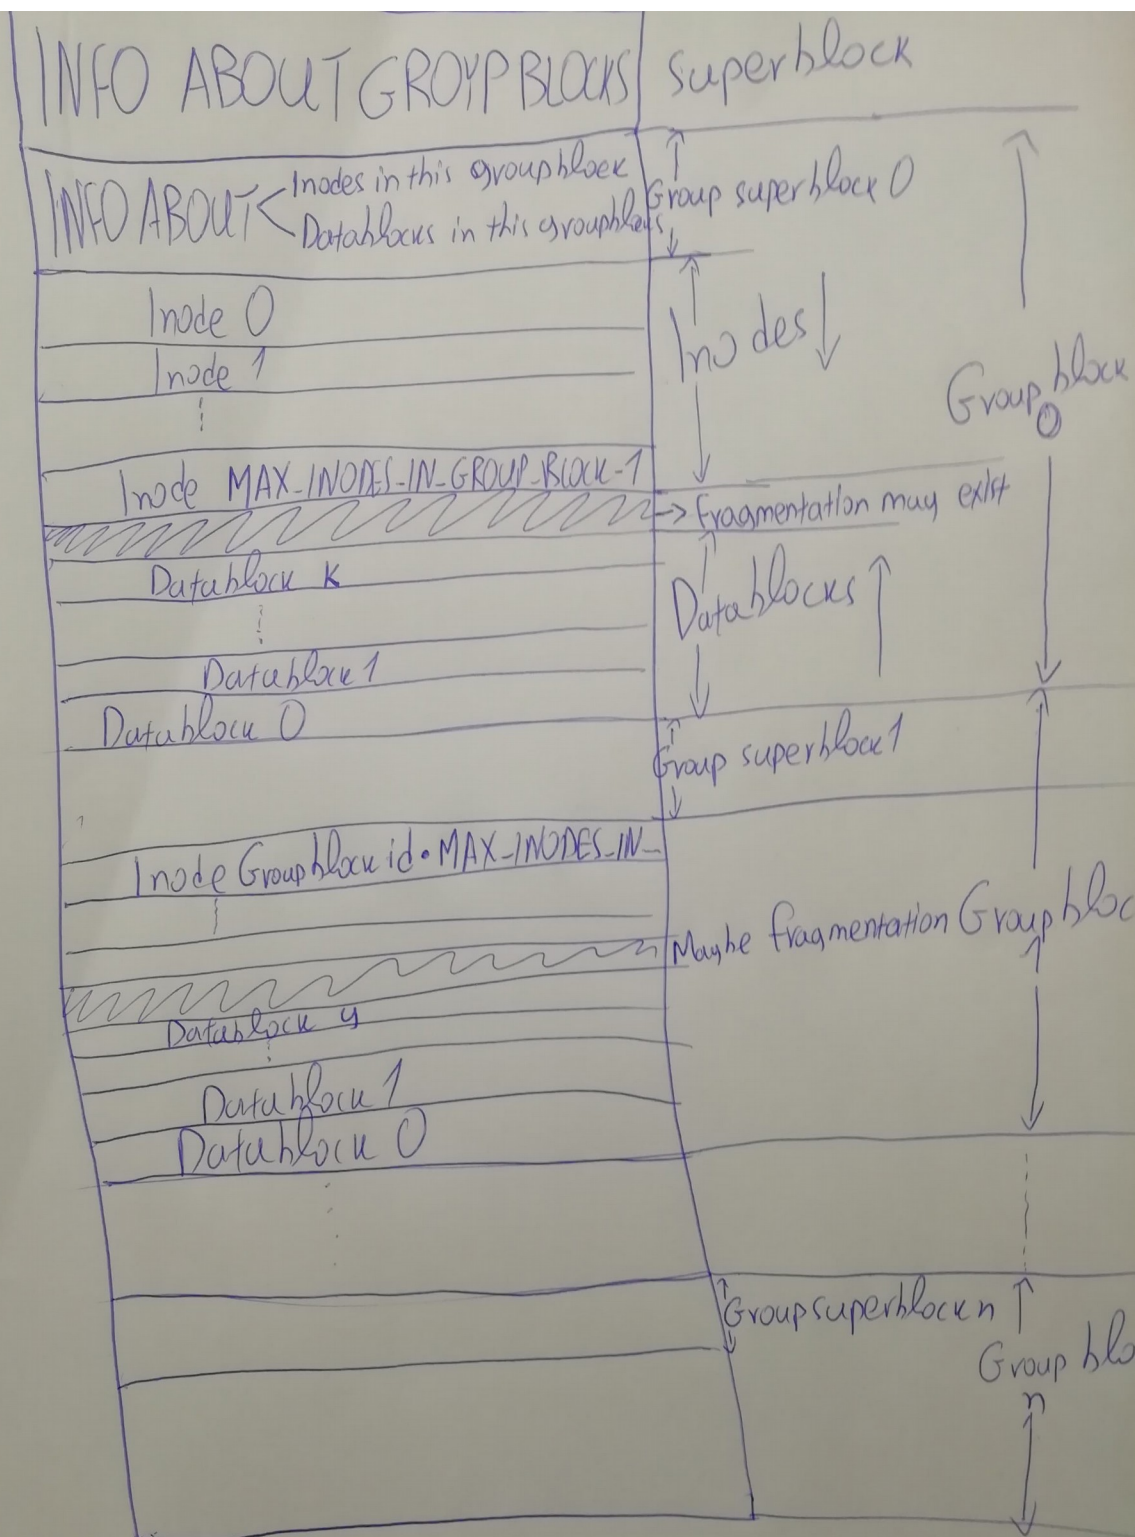 INFO ABOUT GROYPBLOCKS
superblock
INFO ABOUT
Inodes in this groupblock
Datablocks in this groupblocks
Group superblock 0
Inode 0
Inode 1
Inodes
Group block
0
Inode MAX_INODES_IN_GROUP_BLOCK-1
Fragmentation may exist
Datablock k
Datablocks
Datablock 1
Datablock 0
Group superblock 1
Inode Groupblock id • MAX_INODES_IN_
Maybe fragmentation
Group bloc
1
Datablock y
Datablock 1
Datablock 0
Group superblock n
Group blo
n